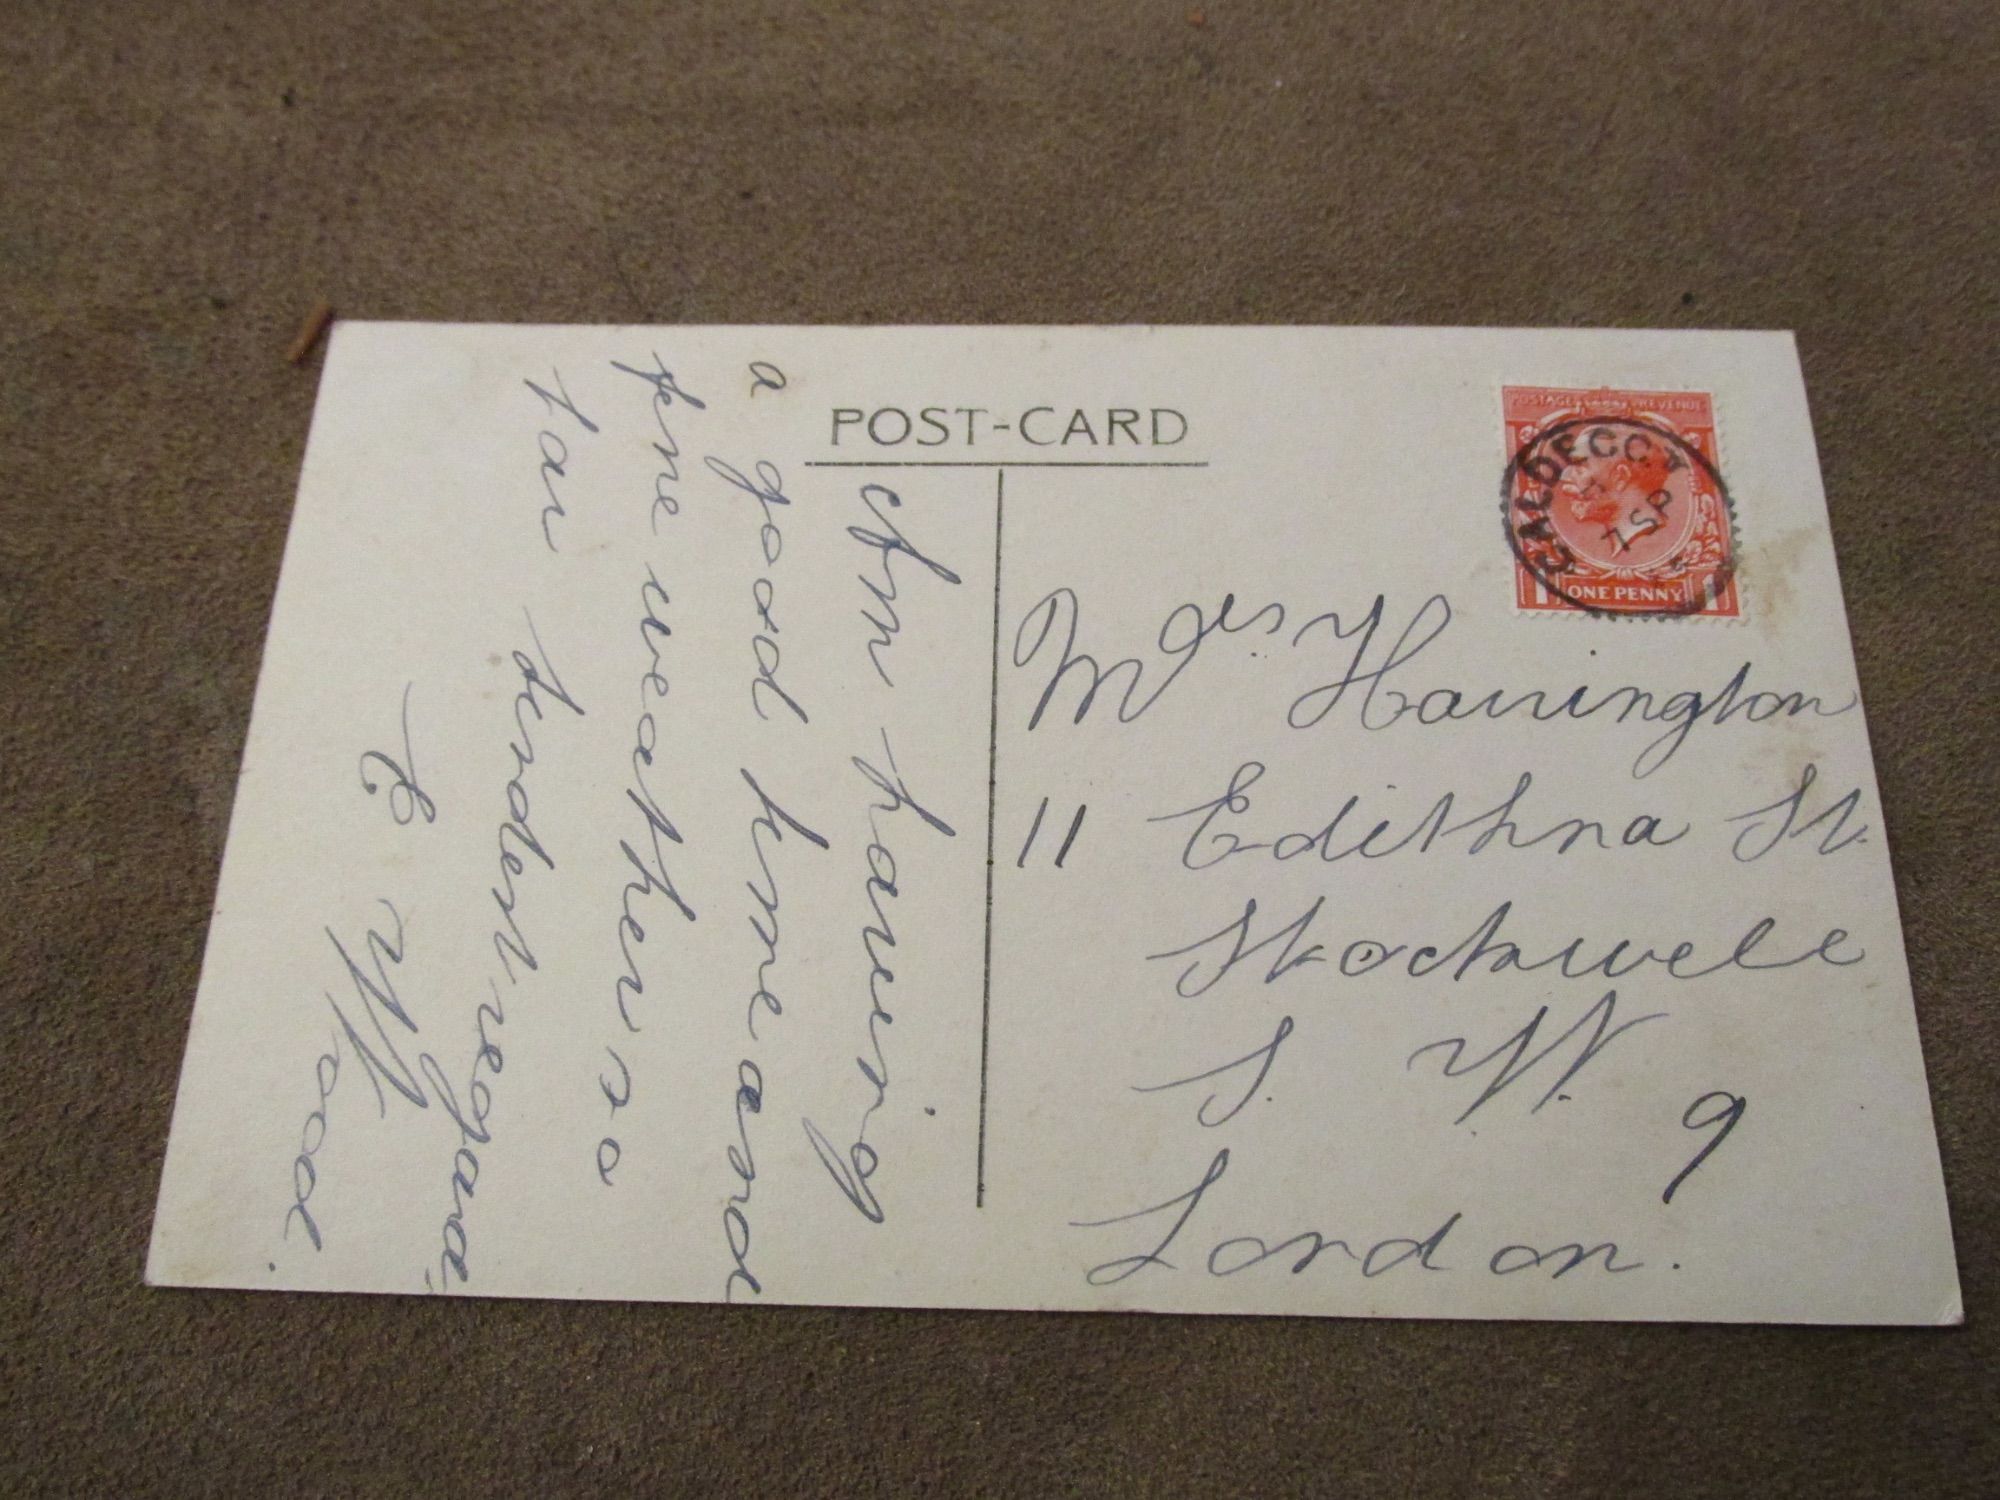 POST-CARD
POSTAGE REVENUE
CALDECOT
7 SP
1 ONE PENNY 1
Mrs. Harrington
11 Edithna St.
Stockwell
S. W. 9
London.
Am having
a good time and
fine weather so
far kindest regards
E Wood.